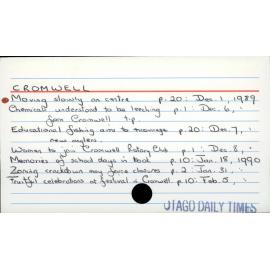 CROMWELL
Moving slowly on centre p.20: Dec. 1, 1989
Chemicals understood to be leeching p.1: Dec. 6, "
from Cromwell tip.
Educational fishing aims to encourage p.20: Dec. 7, "
new anglers.
Women to join Cromwell Rotary Club p.1: Dec. 8, "
Memories of school days in book p.10: Jan. 18, 1990
Zoning crackdown may force closures p.2: Jan. 31, "
Fruitful celebrations at festival in Cromwell. p.10: Feb. 5, "
OTAGO DAILY TIMES